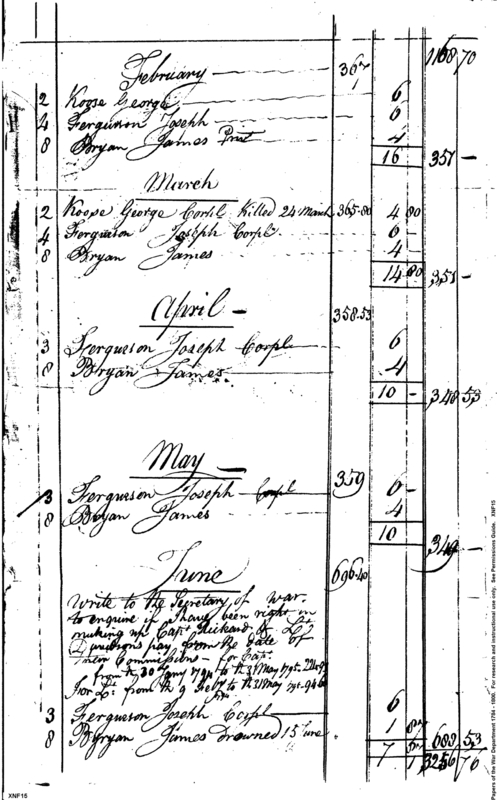 1168 70
February — 367
2 Koose George — 6
4 Ferguson Joseph — 6
8 Bryan James Privt 4
16 351 —
March
2 Koose George Corpl Killed 24 March 365.80 4 80
4 Ferguson Joseph Corpl. 6 —
8 Bryan James 4
14 80 351 —
April — 358.53
3 Ferguson Joseph Corpl 6
8 Bryan James 4
10 — 348 53
May — 359
3 Ferguson Joseph Corpl 6 —
8 Bryan James 4
10 349
June 696.40
Write to the Secretary of War.
to enquire if I have been right in
making up Capt. Rickard & Lt.
pay from the date of
their Commissions — for Capt.
from the 30 to the 31 May
For Lt. from the 9 to the 31 May
3 Ferguson Joseph Corpl 6
8 Bryan James drowned 15 June 1 87
7 87 688 53
3256 76
XNF15
Papers of the War Department 1784 - 1800. For research and instructional use only. See Permissions Guide. XNF15